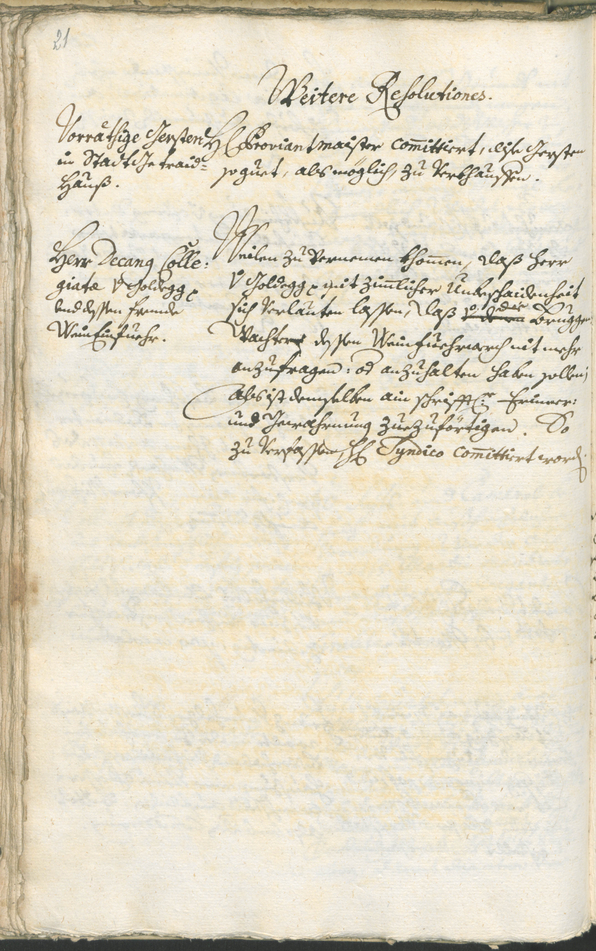 21
Weitere Resolutiones.
Vorräthige Gersten
in Stadt Getraid=
Hauß.
H Proviantmaister committiert, dise Gersten
so guet, als möglich zu verkhauffen.
Herr Decano Colle:
giatæ v Goldegg
und dessen fremde
Wein Einfuehr.
Weilen zu vernemen khommen, daß Herr
v Goldegg mit zimlicher Unbeschaidenheit
sich verlauten lassen, daß die Brugge
Wachter dessen Weinfuehren nit mehr
anzufragen: od anzuhalten haben sollen;
Als ist demselben ain schrifftl: Erinner:
und Gewahrnung zuezuförtigen. So
zu verfassen H Syndico committiert word